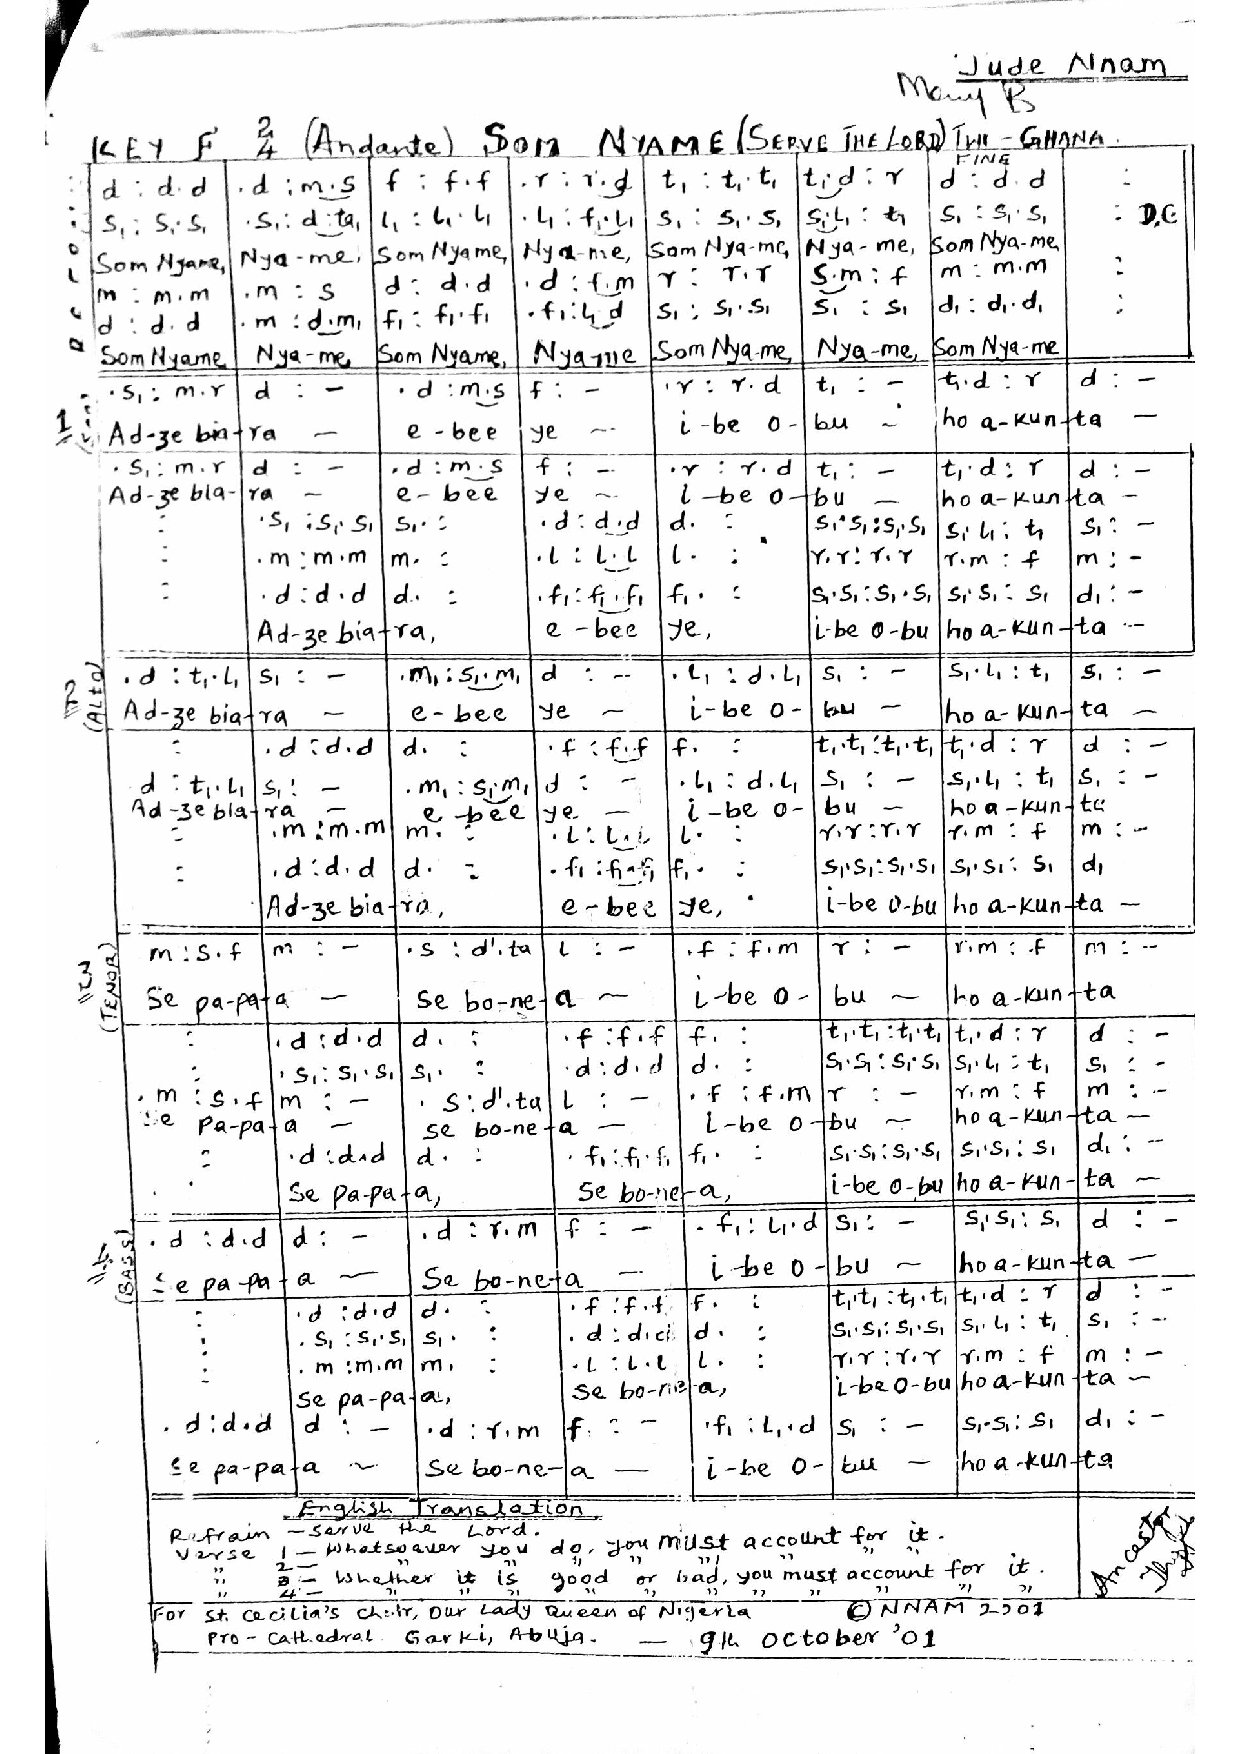 Jude Nnam
KEY F 2/4 (Andante) SOM NYAME (SERVE THE LORD) TWI - GHANA.
FINE
: d : d.d | .d : m.s | f : f.f | .r : r.d | t₁ : t₁.t₁ | t₁.d : r | d : d.d | :
s₁ : s₁.s₁ | .s₁ : d.ta₁ | l₁ : l₁.l₁ | .l₁ : f₁.l₁ | s₁ : s₁.s₁ | s₁.l₁ : t₁ | s₁ : s₁.s₁ | : D.C
Som Nyame, | Nya-me, | Som Nyame, | Nya-me, | Som Nya-me, | Nya-me, | Som Nya-me,
m : m.m | .m : s | d : d.d | .d : f.m | r : r.r | s.m : f | m : m.m | :
d : d.d | .m : d.m₁ | f₁ : f₁.f₁ | .f₁ : l₁.d | s₁ : s₁.s₁ | s₁ : s₁ | d₁ : d₁.d₁ | :
Som Nyame | Nya-me, | Som Nyame, | Nya-me | Som Nya-me, | Nya-me, | Som Nya-me
1
.s₁ : m.r | d : - | .d : m.s | f : - | .r : r.d | t₁ : - | t₁.d : r | d : -
Ad-ze bia-ra — e-bee ye — i-be o-bu - ho a-kun-ta —
.s₁ : m.r | d : - | .d : m.s | f : - | .r : r.d | t₁ : - | t₁.d : r | d : -
Ad-ze bia-ra — e-bee ye — i-be o-bu — ho a-kun-ta -
: | .s₁ : s₁.s₁ | s₁. : | .d : d.d | d. : | s₁.s₁ : s₁.s₁ | s₁.l₁ : t₁ | s₁ : -
: | .m : m.m | m. : | .l : l.l | l. : | r.r : r.r | r.m : f | m : -
: | .d : d.d | d. : | .f₁ : f₁.f₁ | f₁. : | s₁.s₁ : s₁.s₁ | s₁.s₁ : s₁ | d₁ : -
Ad-ze bia-ra, e-bee ye, i-be o-bu ho a-kun-ta -
2 (ALTO)
.d : t₁.l₁ | s₁ : - | .m₁ : s₁.m₁ | d : - | .l₁ : d.l₁ | s₁ : - | s₁.l₁ : t₁ | s₁ : -
Ad-ze bia-ra — e-bee ye — i-be o-bu — ho a-kun-ta —
: | .d : d.d | d. : | .f : f.f | f. : | t₁.t₁ : t₁.t₁ | t₁.d : r | d : -
d : t₁.l₁ | s₁ : - | .m₁ : s₁.m₁ | d : - | .l₁ : d.l₁ | s₁ : - | s₁.l₁ : t₁ | s₁ : -
Ad-ze bia-ra — e-bee ye — i-be o-bu — ho a-kun-ta
: | .m : m.m | m. : | .l : l.l | l. : | r.r : r.r | r.m : f | m : -
: | .d : d.d | d. : | .f₁ : f₁.f₁ | f₁. : | s₁.s₁ : s₁.s₁ | s₁.s₁ : s₁ | d₁
Ad-ze bia-ra, e-bee ye, i-be o-bu ho a-kun-ta —
(TENOR)
m : s.f | m : - | .s : d'.ta | l : - | .f : f.m | r : - | r.m : f | m : -
Se pa-pa-a — Se bo-ne-a — i-be o-bu — ho a-kun-ta
: | .d : d.d | d. : | .f : f.f | f. : | t₁.t₁ : t₁.t₁ | t₁.d : r | d : -
: | .s₁ : s₁.s₁ | s₁. : | .d : d.d | d. : | s₁.s₁ : s₁.s₁ | s₁.l₁ : t₁ | s₁ : -
.m : s.f | m : - | .s : d'.ta | l : - | .f : f.m | r : - | r.m : f | m : -
Se Pa-pa-a — Se bo-ne-a — i-be o-bu — ho a-kun-ta —
: | .d : d.d | d. : | .f₁ : f₁.f₁ | f₁. : | s₁.s₁ : s₁.s₁ | s₁.s₁ : s₁ | d₁ : -
Se pa-pa-a, Se bo-ne-a, i-be o-bu ho a-kun-ta —
(BASS)
.d : d.d | d : - | .d : r.m | f : - | .f₁ : l₁.d | s₁ : - | s₁.s₁ : s₁ | d : -
Se pa-pa-a — Se bo-ne-a — i-be o-bu — ho a-kun-ta —
: | .d : d.d | d. : | .f : f.f | f. : | t₁.t₁ : t₁.t₁ | t₁.d : r | d : -
: | .s₁ : s₁.s₁ | s₁. : | .d : d.d | d. : | s₁.s₁ : s₁.s₁ | s₁.l₁ : t₁ | s₁ : -
: | .m : m.m | m. : | .l : l.l | l. : | r.r : r.r | r.m : f | m : -
Se pa-pa-a, Se bo-ne-a, i-be o-bu ho a-kun-ta —
.d : d.d | d : - | .d : r.m | f. : - | .f₁ : l₁.d | s₁ : - | s₁.s₁ : s₁ | d₁ : -
Se pa-pa-a — Se bo-ne-a — i-be o-bu — ho a-kun-ta
English Translation
Refrain - Serve the Lord.
Verse 1 - Whatsoever you do, you must account for it.
" 2 - " " " " " " "
" 3 - Whether it is good or bad, you must account for it.
" 4 - " " " " " " " " " "
For St. Cecilia's Choir, Our Lady Queen of Nigeria © NNAM 2001
Pro-Cathedral Garki, Abuja. — 9th October '01